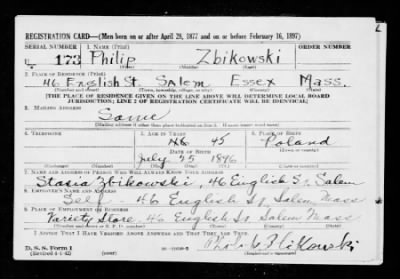 REGISTRATION CARD—(Men born on or after April 28, 1877 and on or before February 16, 1897)
SERIAL NUMBER 1. NAME (Print) ORDER NUMBER
U 173 Philip Zbikowski
(First) (Middle) (Last)
2. PLACE OF RESIDENCE (Print)
46 English St Salem Essex Mass.
(Number and street) (Town, township, village, or city) (County) (State)
[THE PLACE OF RESIDENCE GIVEN ON THE LINE ABOVE WILL DETERMINE LOCAL BOARD
JURISDICTION; LINE 2 OF REGISTRATION CERTIFICATE WILL BE IDENTICAL]
3. MAILING ADDRESS
Same
[Mailing address if other than place indicated on line 2. If same insert word same]
4. TELEPHONE 5. AGE IN YEARS 6. PLACE OF BIRTH
45 Poland
DATE OF BIRTH (Town or county)
July 25 1896
(Exchange) (Number) (Mo.) (Day) (Yr.) (State or country)
7. NAME AND ADDRESS OF PERSON WHO WILL ALWAYS KNOW YOUR ADDRESS
Stasia Zbikowski, 46 English St, Salem
8. EMPLOYER'S NAME AND ADDRESS
Self - 46 English St, Salem Mass
9. PLACE OF EMPLOYMENT OR BUSINESS
Variety Store, 46 English St Salem Mass
(Number and street or R. F. D. number) (Town) (County) (State)
I AFFIRM THAT I HAVE VERIFIED ABOVE ANSWERS AND THAT THEY ARE TRUE.
D. S. S. Form 1
(Revised 4-1-42) (over)